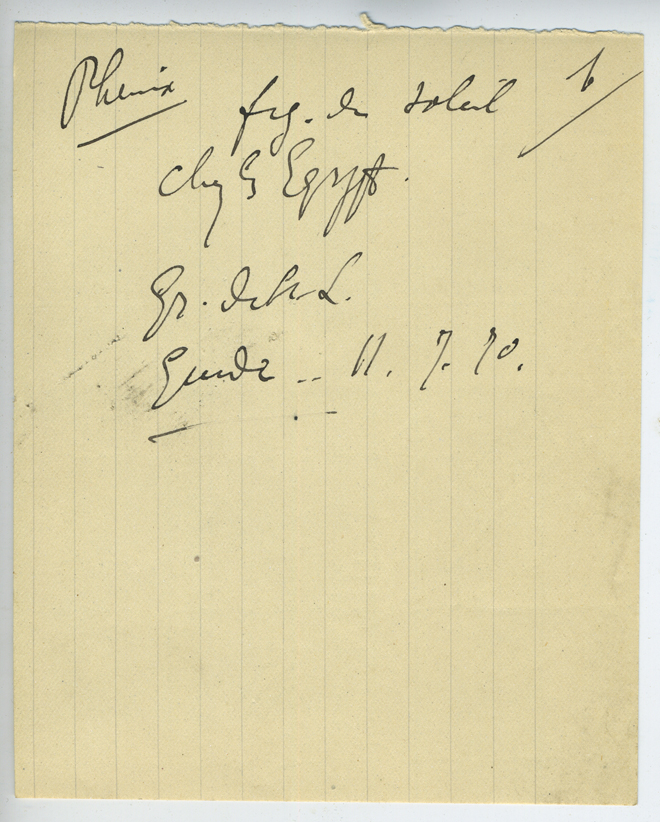 Phenix fig. du soleil 6
chez les Egypt.
Gr. de la L.
Guide -- 11. 7. 70.